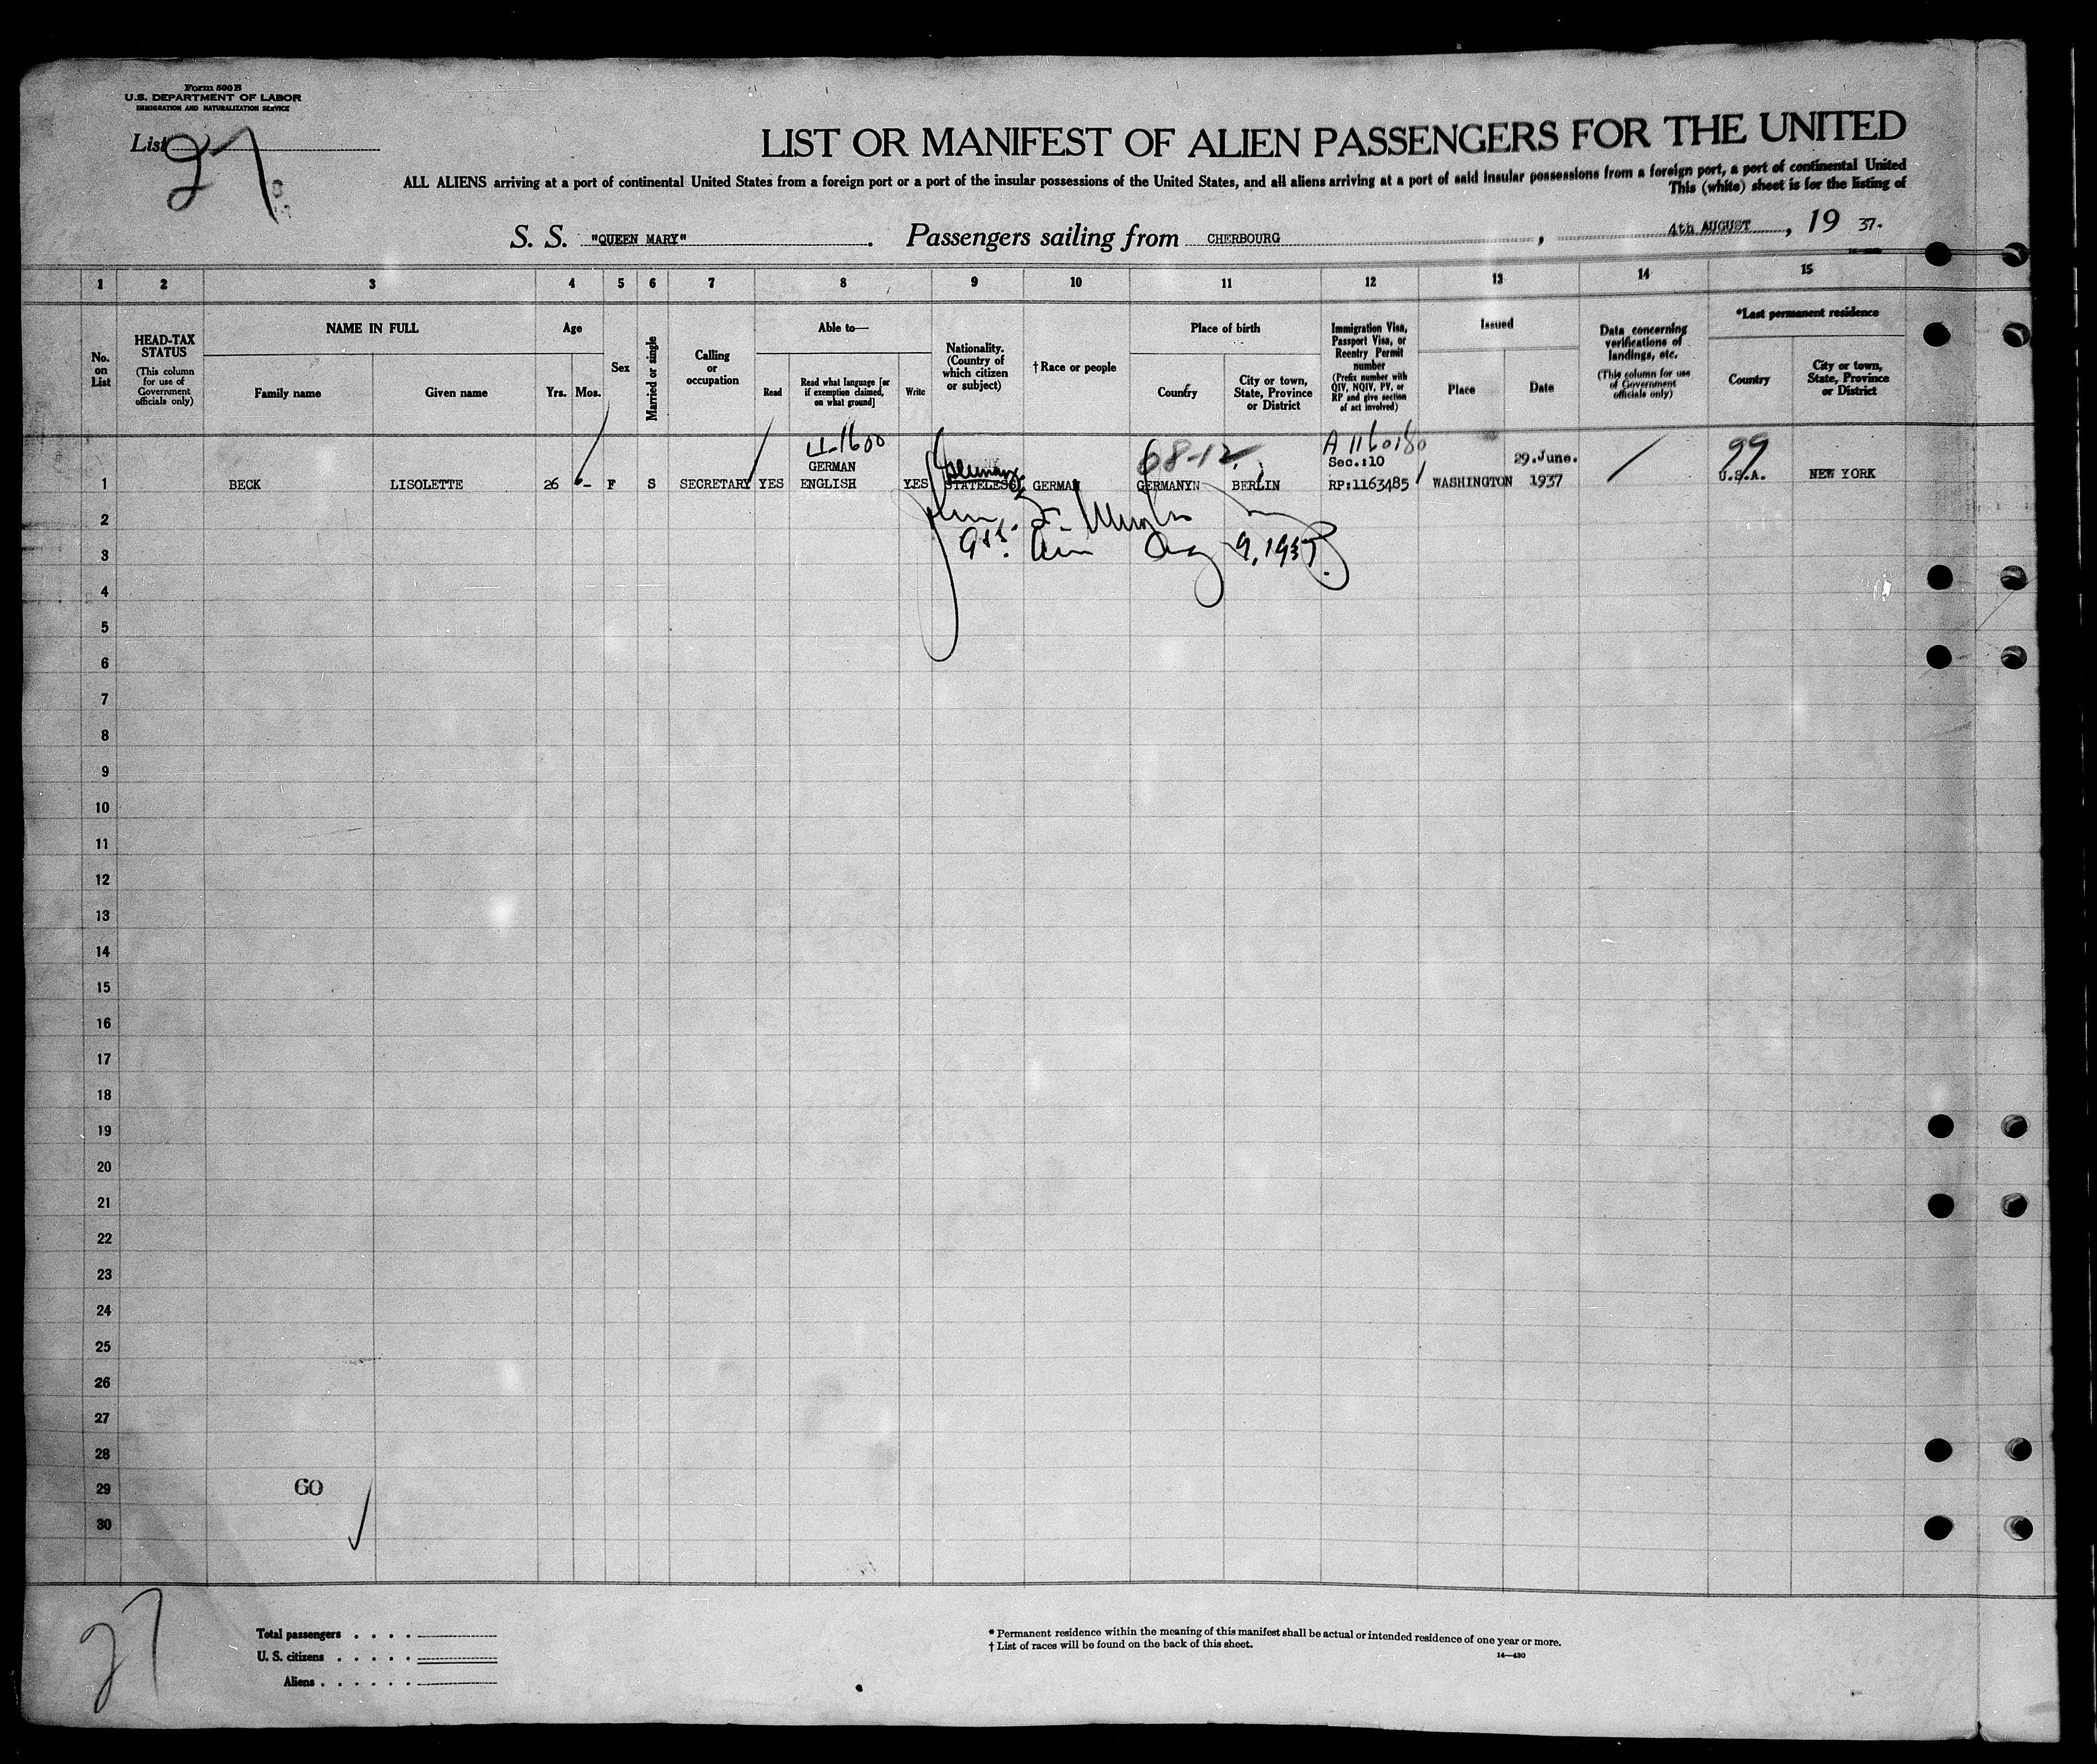 Form 500 B
U.S. DEPARTMENT OF LABOR
IMMIGRATION AND NATURALIZATION SERVICE
List 27
LIST OR MANIFEST OF ALIEN PASSENGERS FOR THE UNITED
ALL ALIENS arriving at a port of continental United States from a foreign port or a port of the insular possessions of the United States, and all aliens arriving at a port of said insular possessions from a foreign port, a port of continental United
This (white) sheet is for the listing of
S. S. "QUEEN MARY" . Passengers sailing from CHERBOURG , 4th AUGUST , 19 37.
1 2 3 4 5 6 7 8 9 10 11 12 13 14 15
No. on List
HEAD-TAX STATUS (This column for use of Government officials only)
NAME IN FULL
Family name Given name
Age
Yrs. Mos.
Sex
Married or single
Calling or occupation
Able to—
Read Read what language [or if exemption claimed, on what ground] Write
Nationality. (Country of which citizen or subject)
† Race or people
Place of birth
Country City or town, State, Province or District
Immigration Visa, Passport Visa, or Reentry Permit number (Prefix number with QIV, NQIV, PV, or RP and give section of act involved)
Issued
Place Date
Data concerning verifications of landings, etc. (This column for use of Government officials only)
*Last permanent residence
Country City or town, State, Province or District
4-1600 68-12 A 1160180 99
GERMAN Germany Sec.:10 29.June.
1 BECK LISOLETTE 26 - F S SECRETARY YES ENGLISH YES STATELESS GERMAN GERMANYN BERLIN RP:1163485 WASHINGTON 1937 U.S.A. NEW YORK
2
3 Aug 9, 1937.
4
5
6
7
8
9
10
11
12
13
14
15
16
17
18
19
20
21
22
23
24
25
26
27
28
29 60
30
27
Total passengers . . . .
U. S. citizens . . . . .
Aliens . . . . . .
* Permanent residence within the meaning of this manifest shall be actual or intended residence of one year or more.
† List of races will be found on the back of this sheet.
14—430